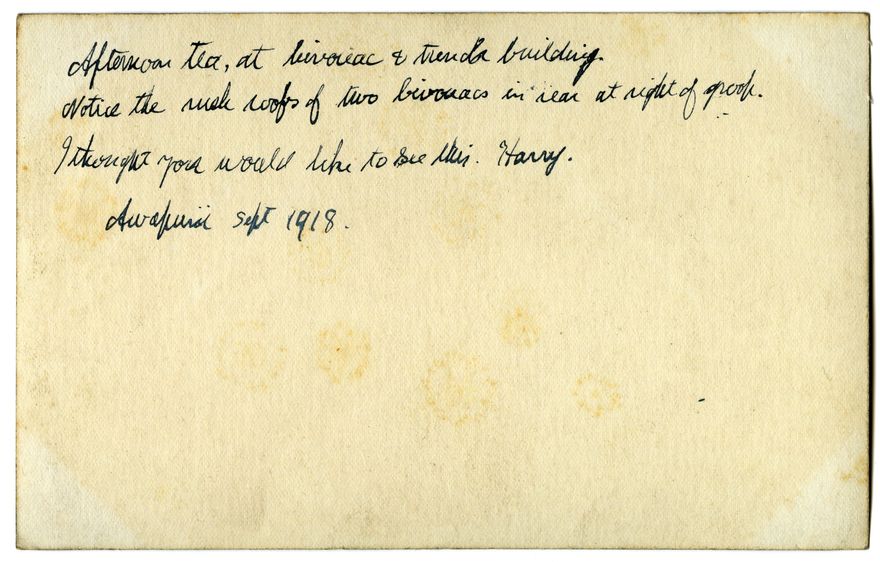 Afternoon tea, at bivouac & trench building.
Notice the rush roofs of two bivouacs in rear at right of group.
I thought you would like to see this. Harry.
Awapuni Sept 1918.